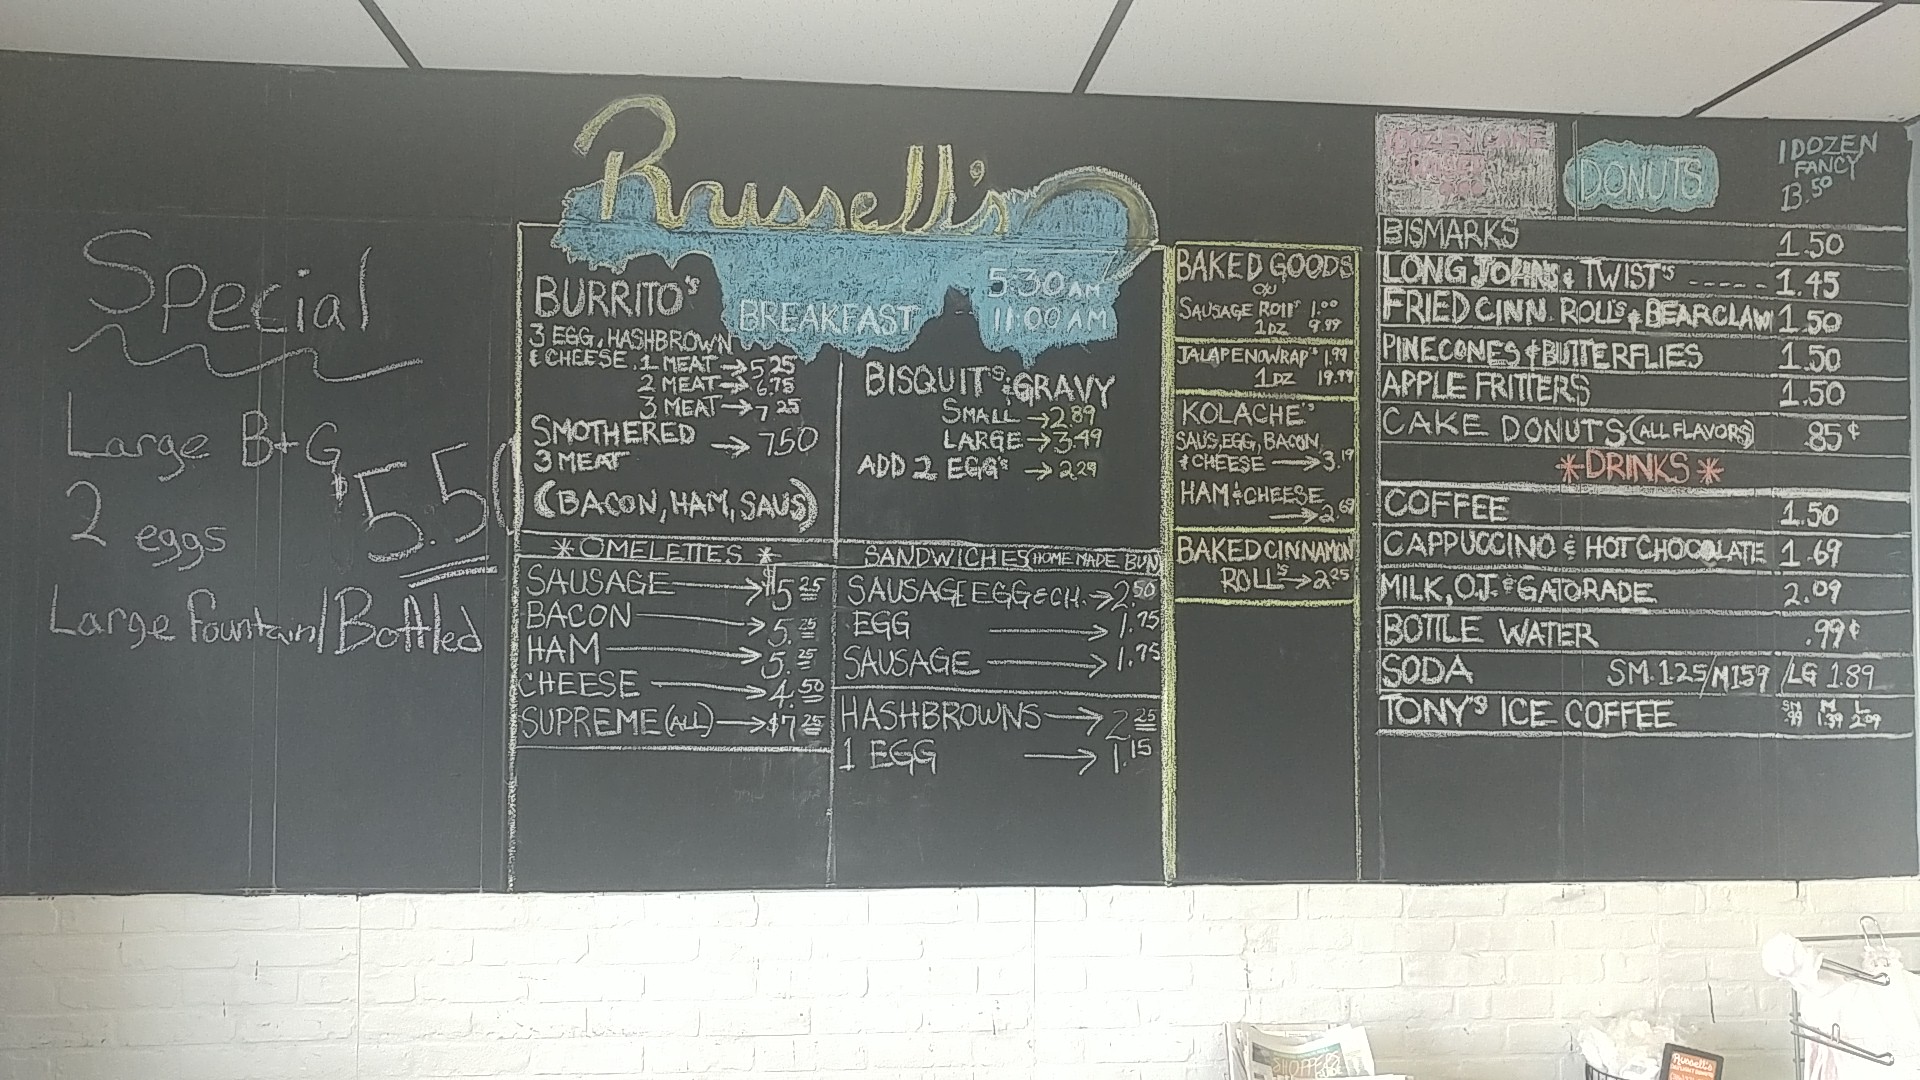 Special
Large B+G
2 eggs
$5.50
Large Fountain/Bottled
Russell's
BREAKFAST
5:30 AM
11:00 AM
BURRITO'S
3 EGG, HASHBROWN
& CHEESE, 1 MEAT → 5.25
2 MEAT → 6.75
3 MEAT → 7.25
SMOTHERED → 7.50
3 MEAT
(BACON, HAM, SAUS)
BISQUIT'S & GRAVY
SMALL → 2.89
LARGE → 3.49
ADD 2 EGG'S → 2.29
* OMELETTES *
SAUSAGE → $5.25
BACON → 5.25
HAM → 5.25
CHEESE → 4.50
SUPREME (ALL) → $7.25
SANDWICHES HOME MADE BUN
SAUSAGE EGG & CH. → 2.50
EGG → 1.75
SAUSAGE → 1.75
HASHBROWNS → 2.25
1 EGG → 1.15
BAKED GOODS
SAUSAGE ROLL'S 1.00
1 DZ 9.99
JALAPENO WRAP'S 1.99
1 DZ 19.99
KOLACHE'S
SAUS, EGG, BACON,
& CHEESE → 3.19
HAM & CHEESE
→ 2.69
BAKED CINNAMON
ROLL'S → 2.25
DONUTS
1 DOZEN
FANCY
13.50
BISMARKS 1.50
LONG JOHNS & TWIST'S ----- 1.45
FRIED CINN. ROLL'S & BEARCLAW 1.50
PINECONES & BUTTERFLIES 1.50
APPLE FRITTERS 1.50
CAKE DONUTS (ALL FLAVORS) .85¢
* DRINKS *
COFFEE 1.50
CAPPUCCINO & HOT CHOCOLATE 1.69
MILK, O.J. & GATORADE 2.09
BOTTLE WATER .99¢
SODA SM. 1.25/M 1.59/LG 1.89
TONY'S ICE COFFEE SM .99 M 1.39 L 2.09
SHOPPERS
Russell's